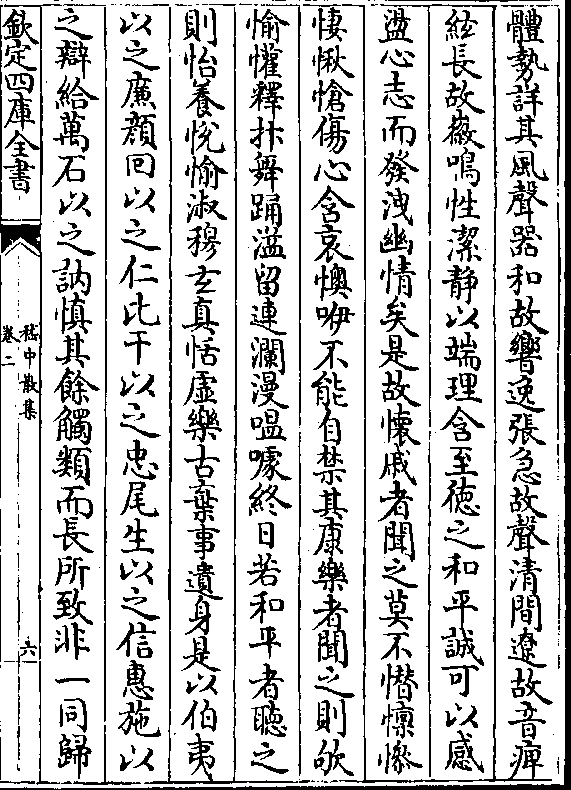 體勢詳其風聲器和故響逸張急故聲清間遼故音痺
絃長故徽鳴性潔靜以端理含至德之和平誠可以感
盪心志而發洩幽情矣是故懷戚者聞之莫不憯懍慘
悽愀愴傷心含哀懊咿不能自禁其康樂者聞之則欨
愉懽釋抃舞踊溢留連瀾漫嗢噱終日若和平者聽之
則怡養悅愉淑穆玄真恬虛樂古棄事遺身是以伯夷
以之廉顔回以之仁比干以之忠尾生以之信惠施以
之辯給萬石以之訥慎其餘觸類而長所致非一同歸
欽定四庫全書
嵇中散集
卷二
六